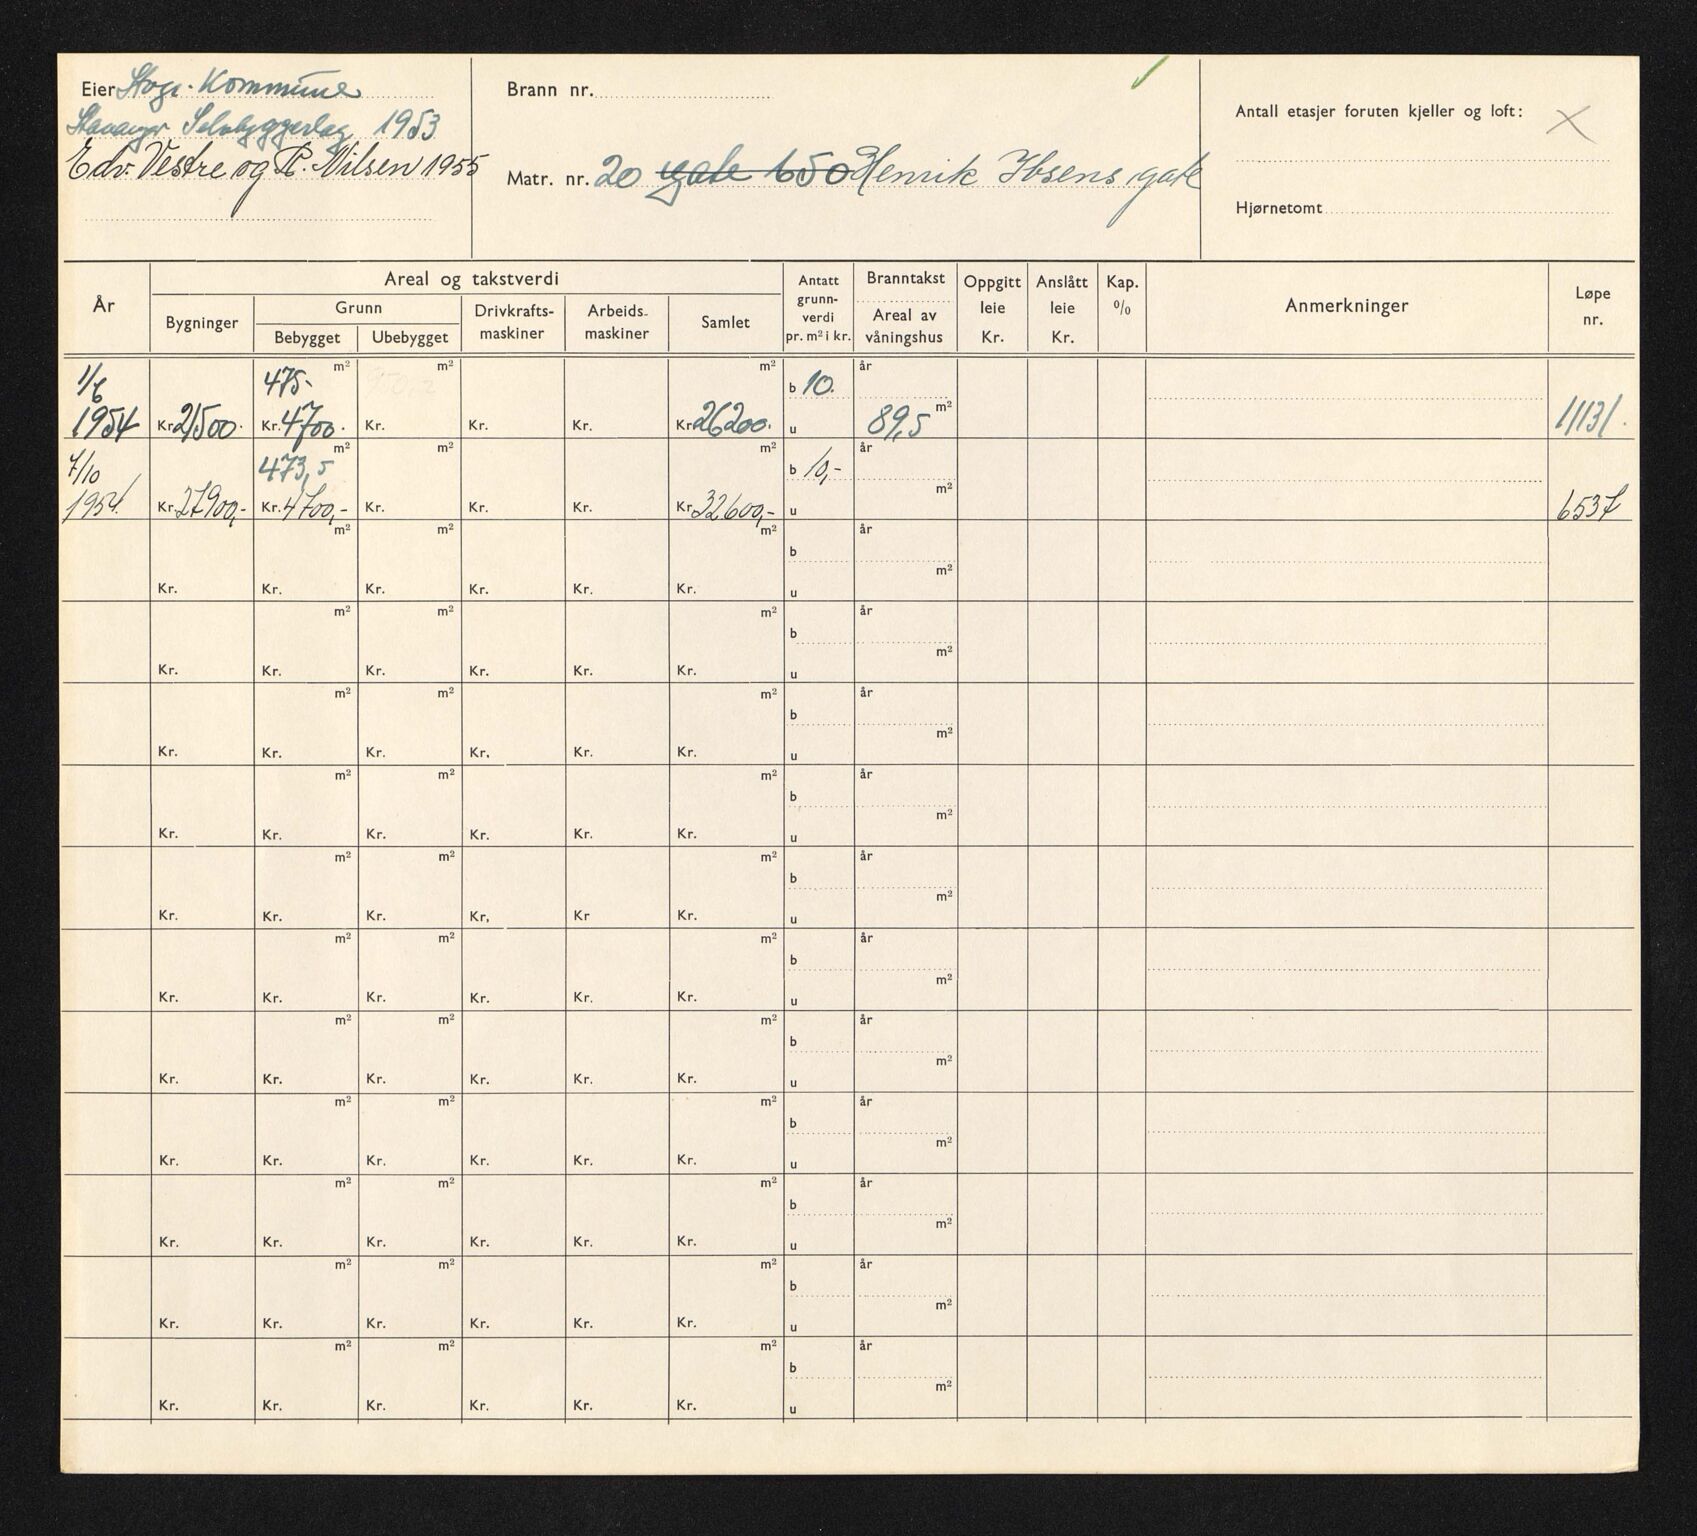 Eier Stvgr. Kommune
Stavanger Selvbyggerlag 1953
Edv. Vestre og P. Nilsen 1955
Brann nr.
Matr. nr. 20 gate 650 Henrik Ibsens gate
Antall etasjer foruten kjeller og loft: X
Hjørnetomt
År Areal og takstverdi Antatt grunn-verdi pr. m² i kr. Branntakst Areal av våningshus Oppgitt leie Kr. Anslått leie Kr. Kap. % Anmerkninger Løpe nr.
Bygninger Grunn Drivkrafts-maskiner Arbeids-maskiner Samlet
Bebygget Ubebygget
1/6 475- m² m² m² b 10. år
1954 Kr. 21500. Kr. 4700. Kr. Kr. Kr. Kr. 26200. u 89,5 m² 11131.
7/10 473,5 m² m² m² b 10,- år
1954. Kr. 27900,- Kr. 4700,- Kr. Kr. Kr. Kr. 32600,- u m² 6537
m² m² m² b år
Kr. Kr. Kr. Kr. Kr. Kr. u m²
m² m² m² b år
Kr. Kr. Kr. Kr. Kr. Kr. u m²
m² m² m² b år
Kr. Kr. Kr. Kr. Kr. Kr. u m²
m² m² m² b år
Kr. Kr. Kr. Kr. Kr. Kr. u m²
m² m² m² b år
Kr. Kr. Kr. Kr, Kr Kr. u m²
m² m² m² b år
Kr. Kr. Kr. Kr. Kr. Kr. u m²
m² m² m² b år
Kr. Kr. Kr. Kr. Kr. Kr. u m²
m² m² m² b år
Kr. Kr. Kr. Kr. Kr. Kr. u m²
m² m² m² b år
Kr. Kr. Kr. Kr. Kr. Kr. u m²
m² m² m² b år
Kr. Kr. Kr. Kr. Kr. Kr. u m²
m² m² m² b år
Kr. Kr. Kr. Kr. Kr. Kr. u m²